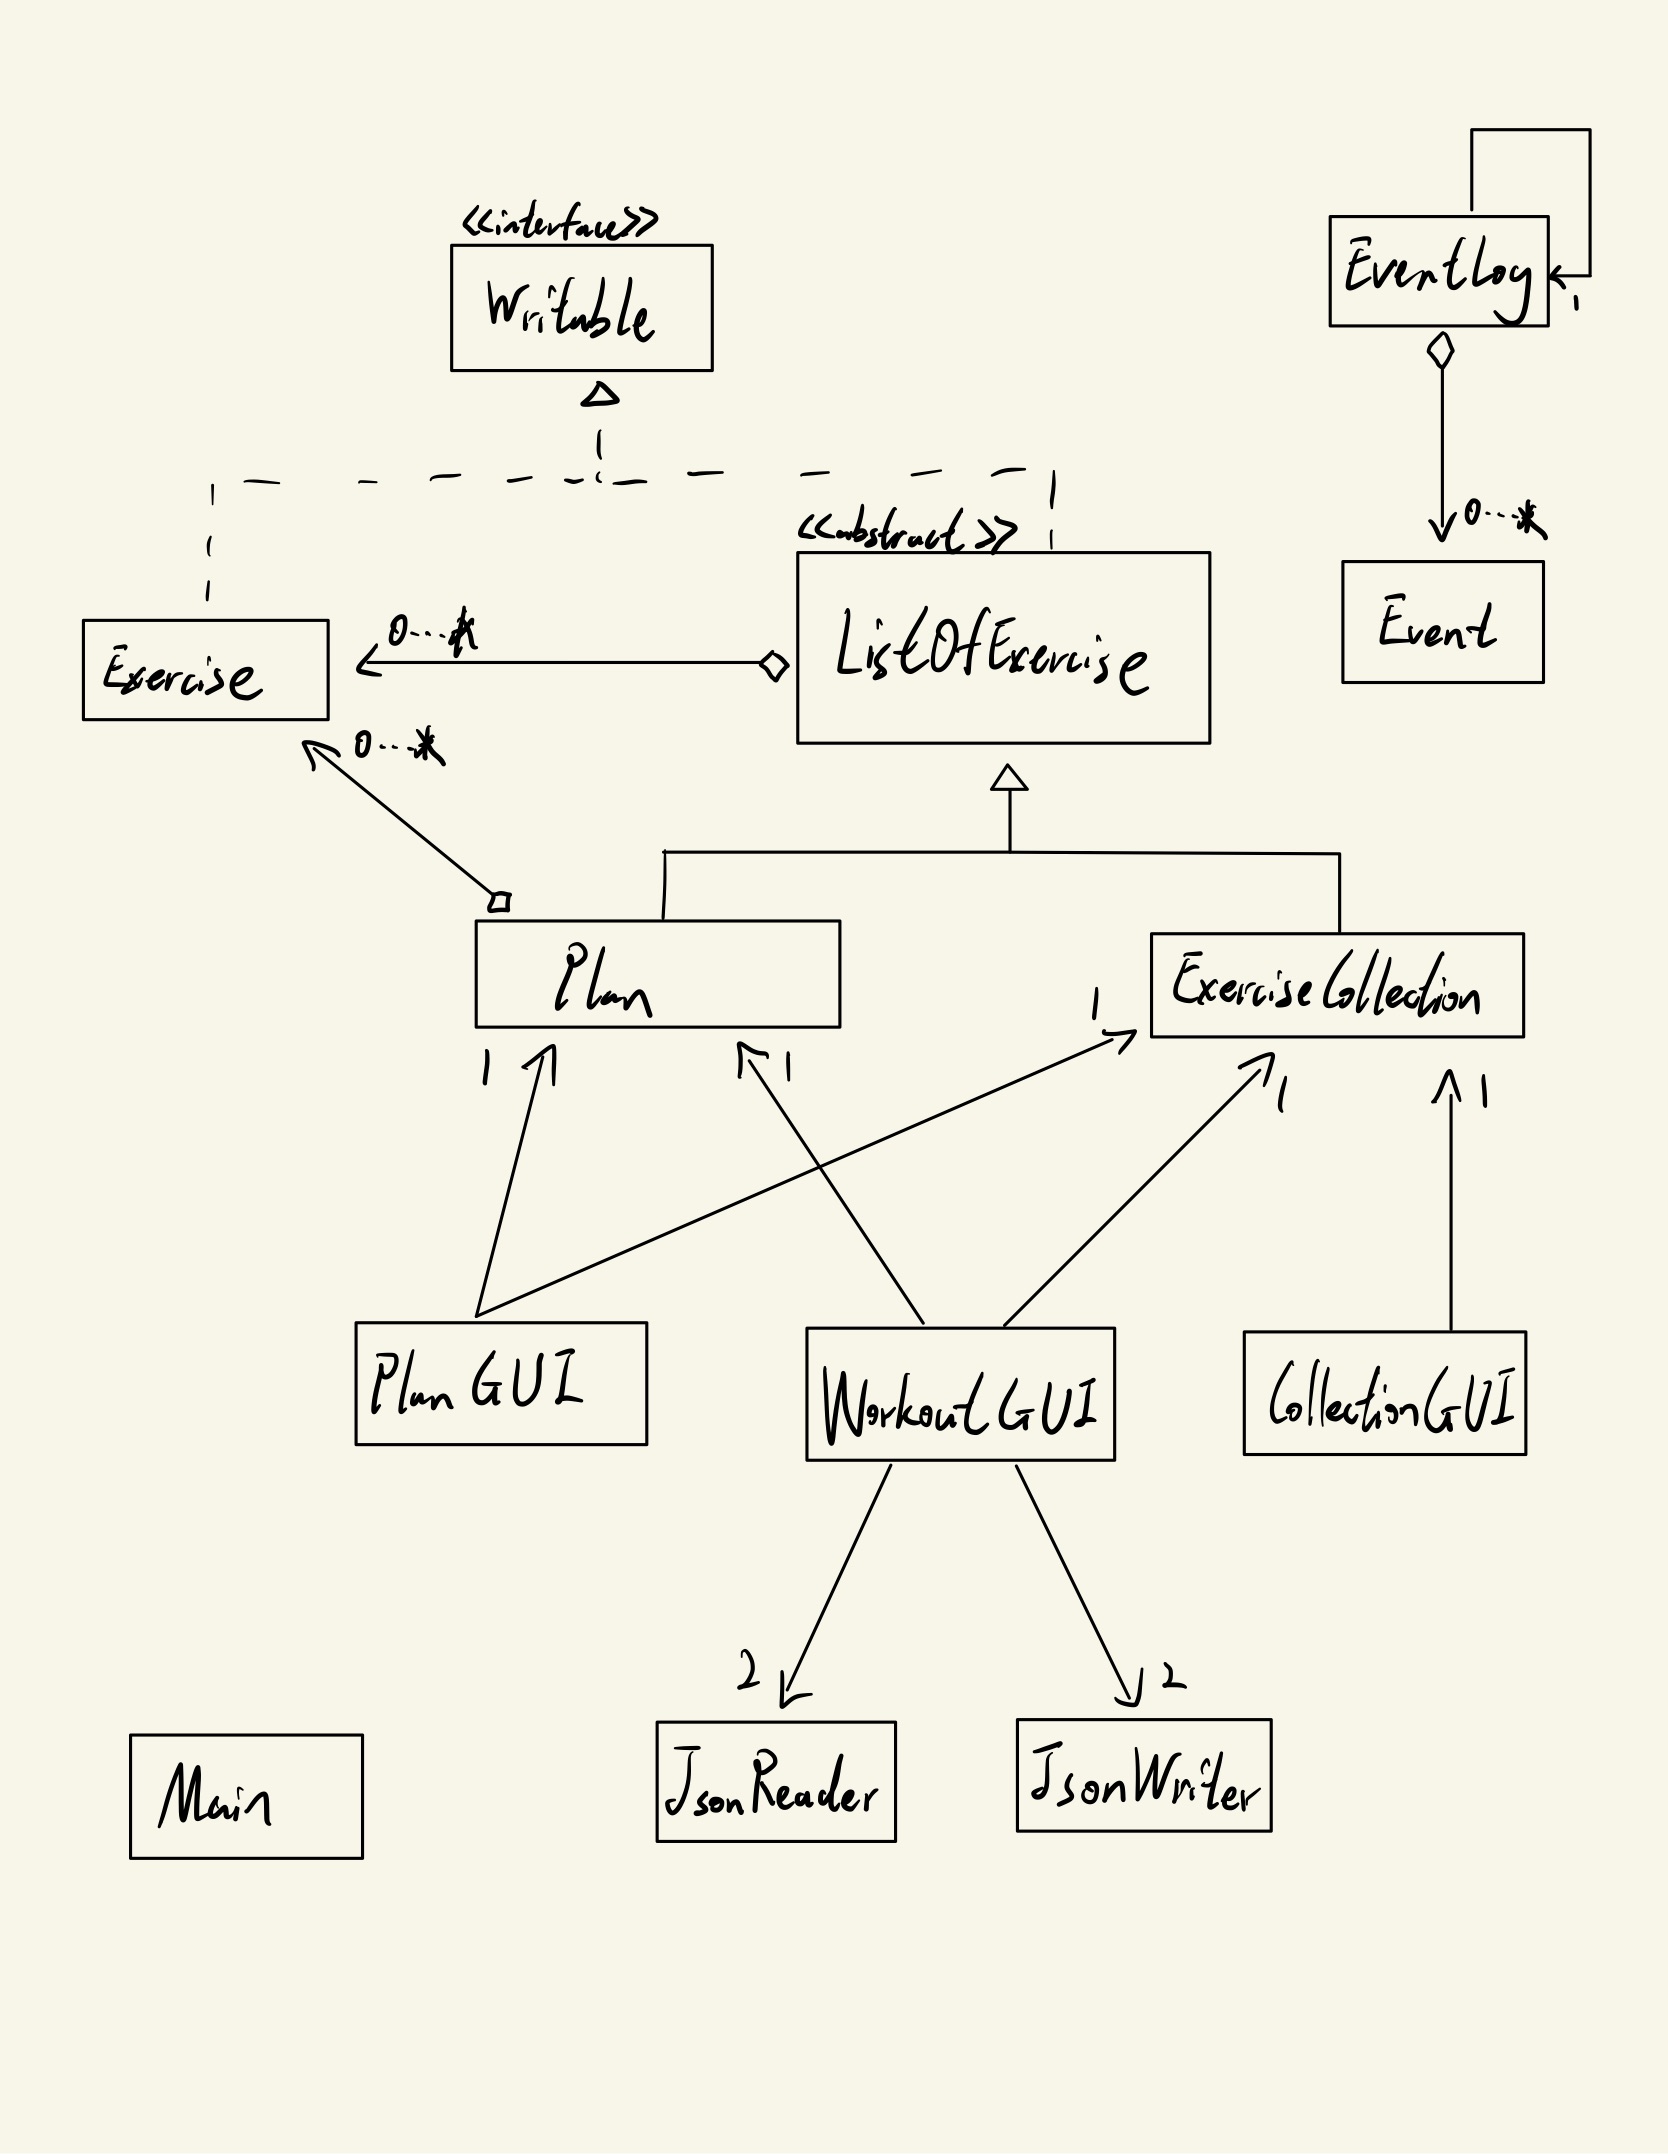 <<interface>>
Writable
EventLog
1
0...*
Event
<<abstract>>
ListOfExercise
0...*
Exercise
0...*
Plan
ExerciseCollection
1
1
1
1
1
Plan GUI
Workout GUI
CollectionGUI
2
2
JsonReader
JsonWriter
Main